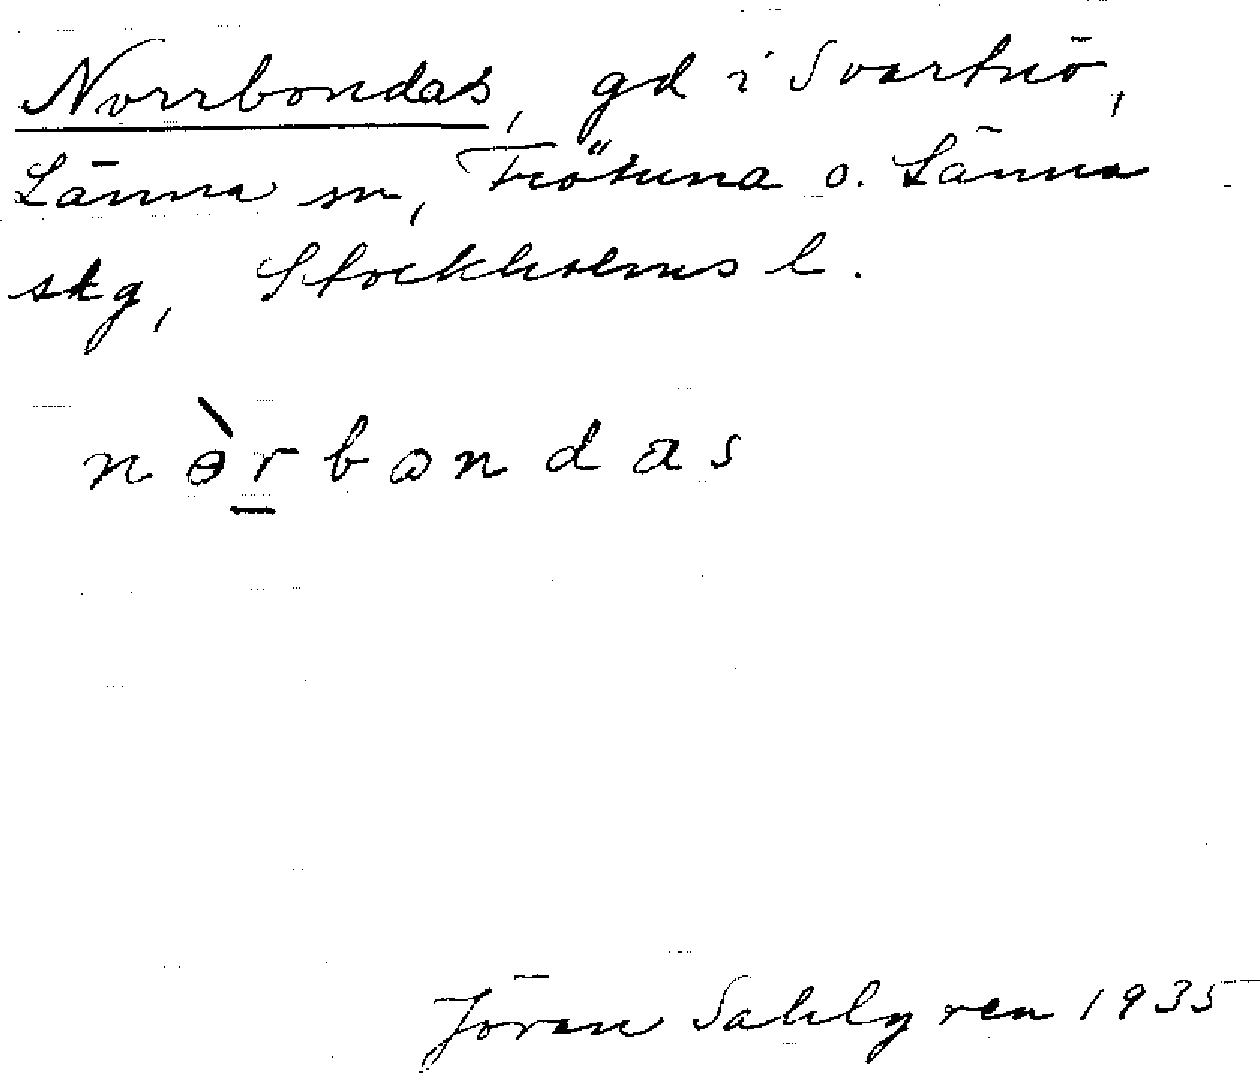 Norrbondas, gd i Svartnö,
Länna sn, Frötuna o. Länna
skg, Stockholms l.
nɵ̀r̲bondas
Jöran Sahlgren 1935